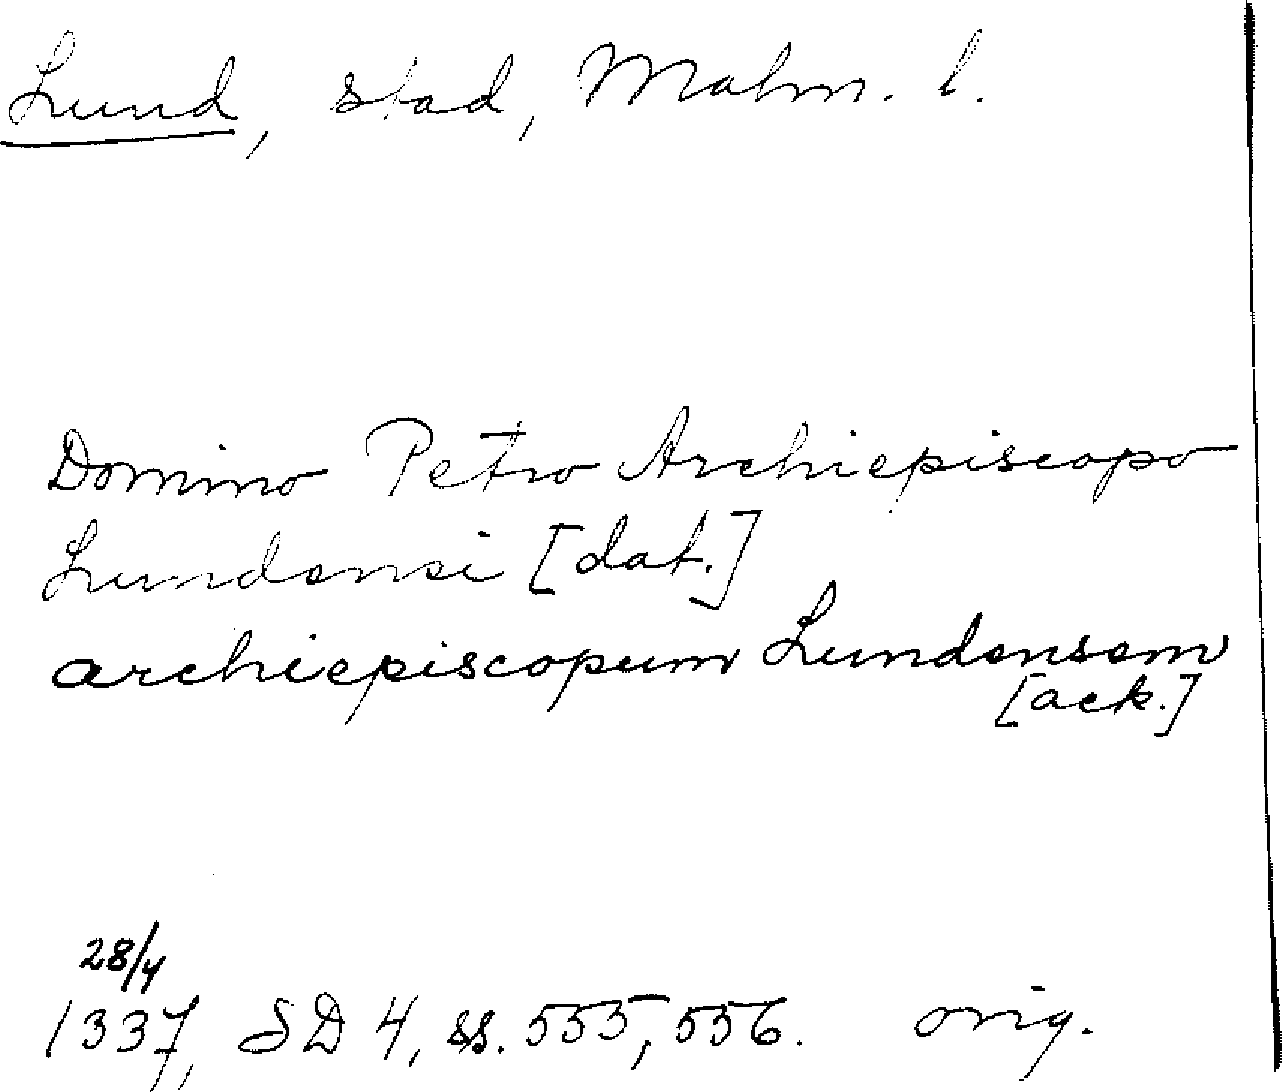 Lund, stad, Malm. l.
Domino Petro Archiepiscopo
Lundensi [dat.]
archiepiscopum Lundensem
[ack.]
28/4
1337, SD 4, ss. 555, 556. orig.